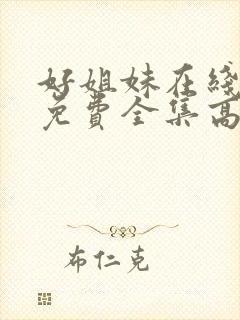 好姐妹在綫
免費全集高
布仁克